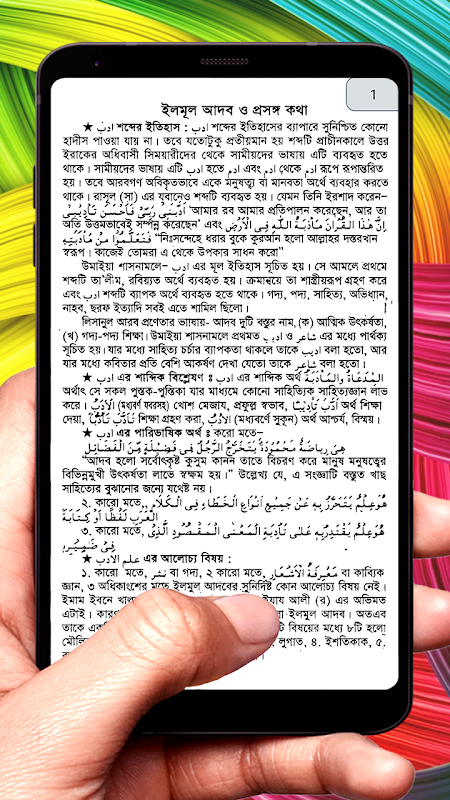 1
ইলমূল আদব ও প্রসঙ্গ কথা
★ ادب শব্দের ইতিহাস : ادب শব্দের ইতিহাসের ব্যাপারে সুনিশ্চিত কোনো
হাদীস পাওয়া যায় না। তবে যতোটুকু প্রতীয়মান হয় শব্দটি প্রাচীনকালে উত্তর
ইরাকের অধিবাসী সিময়ারীদের থেকে সামীয়দের ভাষায় এটি ব্যবহৃত হতে
থাকে। সামীয়দের ভাষায় এটি ادب হতে ادم এবং ادم থেকে ادم রূপে রূপান্তরিত
হয়। তবে আরবগণ অবিকৃতভাবে একে মনুষ্যত্ব বা মানবতা অর্থে ব্যবহার করতে
থাকে। রাসূল (সা) এর যবানেও শব্দটি ব্যবহৃত হয়। যেমন তিনি ইরশাদ করেন–
اَدَّبَنِىْ رَبِّىْ فَاَحْسَنَ تَأْدِيْبِىْ 'আমার রব আমার প্রতিপালন করেছেন, আর তা
অতি উত্তমভাবেই সম্পন্ন করেছেন' এবং اِنَّ هٰذَا الْقُرْاٰنَ مَأْدُبَةُ اللّٰهِ فِى الْاَرْضِ
فَتَعَلَّمُوْا مِنْ مَأْدُبَتِهِ "নিঃসন্দেহে ধরার বুকে কুরআন হলো আল্লাহর দস্তরখান
স্বরূপ। কাজেই তোমরা এ থেকে উপকার সাধন করো"
উমাইয়া শাসনামলে– ادب এর মূল ইতিহাস সূচিত হয়। সে আমলে প্রথমে
শব্দটি তা'লীম, রবিয়্যত অর্থে ব্যবহৃত হয়। ক্রমান্বয়ে তা শাস্ত্রীয়রূপ গ্রহণ করে
এবং ادب শব্দটি ব্যাপক অর্থে ব্যবহৃত হতে থাকে। গদ্য, পদ্য, সাহিত্য, অভিধান,
নাহব, ছরফ ইত্যাদি সবই এতে শামিল ছিলো।
লিসানুল আরব প্রণেতার ভাষায়- আদব দুটি বস্তুর নাম, (ক) আত্মিক উৎকর্ষতা,
(খ) গদ্য-পদ্য শিক্ষা। উমাইয়া শাসনামলে প্রথমত اديب ও شاعر এর মধ্যে পার্থক্য
সূচিত হয়। যার মধ্যে সাহিত্য চর্চার ব্যাপকতা থাকলে তাকে اديب বলা হতো, আর
যার মধ্যে কবিতার প্রতি বেশি আকর্ষণ দেখা যেতো তাকে شاعر বলা হতো।
★ ادب এর শাব্দিক বিশ্লেষণ ঃ ادب এর শাব্দিক অর্থ اَلْمُدْعَاةُ وَالْمَأْدَبَةُ
অর্থাৎ সে সকল পুস্তক-পুস্তিকা যার মাধ্যমে কোনো সাহিত্যিক সাহিত্যজ্ঞান লাভ
করে। اَلْاَدَبُ (মধ্যবর্ণে যবরসহ) খোশ মেজায, প্রফুল্ল স্বভাব, اَدَّبَ تَأْدِيْبًا অর্থ শিক্ষা
দেয়া, تَأَدَّبَ تَأَدُّبًا শিক্ষা গ্রহণ করা, اَلْاَدْبُ (মধ্যবর্ণে সুকূন) অর্থ আশ্চর্য, বিস্ময়।
★ ادب এর পারিভাষিক অর্থ ঃ কারো মতে–
هِىَ رِيَاضَةٌ مَحْمُوْدَةٌ يَتَخَرَّجُ الرَّجُلُ فِىْ فَضِيْلَةٍ مِّنَ الْفَضَائِلِ
"আদব হলো সর্বোৎকৃষ্ট কুসুম কানন তাতে বিচরণ করে মানুষ মনুষত্বের
বিভিন্নমুখী উৎকর্ষতা লাভে স্বক্ষম হয়।" উল্লেখ্য যে, এ সংজ্ঞাটি বস্তুত খাছ
সাহিত্যের বুঝানোর জন্যে যথেষ্ট নয়।
২. কারো মতে, هُوَ عِلْمٌ يُتَحَرَّزُ بِهِ عَنْ جَمِيْعِ اَنْوَاعِ الْخَطَاءِ فِى الْكَلَامِ
الْعَرَبِ لَفْظًا اَوْ كِتَابَةً
৩. কারো মতে, هُوَ عِلْمٌ يُقْتَدَرُ بِهِ عَلٰى تَأْدِيَةِ الْمَعْنٰى الْمَقْصُوْدِ الَّذِىْ
فِىْ ضَمِيْرِهِ
★ علم الادب এর আলোচ্য বিষয় :
১. কারো মতে, نثر বা গদ্য, ২ কারো মতে, مَعْرِفَةُ الْاَشْعَارِ বা কাব্যিক
জ্ঞান, ৩ অধিকাংশের মতে ইলমূল আদবের সুনির্দিষ্ট কোন আলোচ্য বিষয় নেই।
ইমাম ইবনে খাল আলী (র) এর অভিমত
এটাই। কারণ ইলমুল আদব। অতএব
তাকে এক বিষয়ের মধ্যে ৮টি হলো
মৌলিক লুগাত, ৪. ইশতিকাক, ৫.